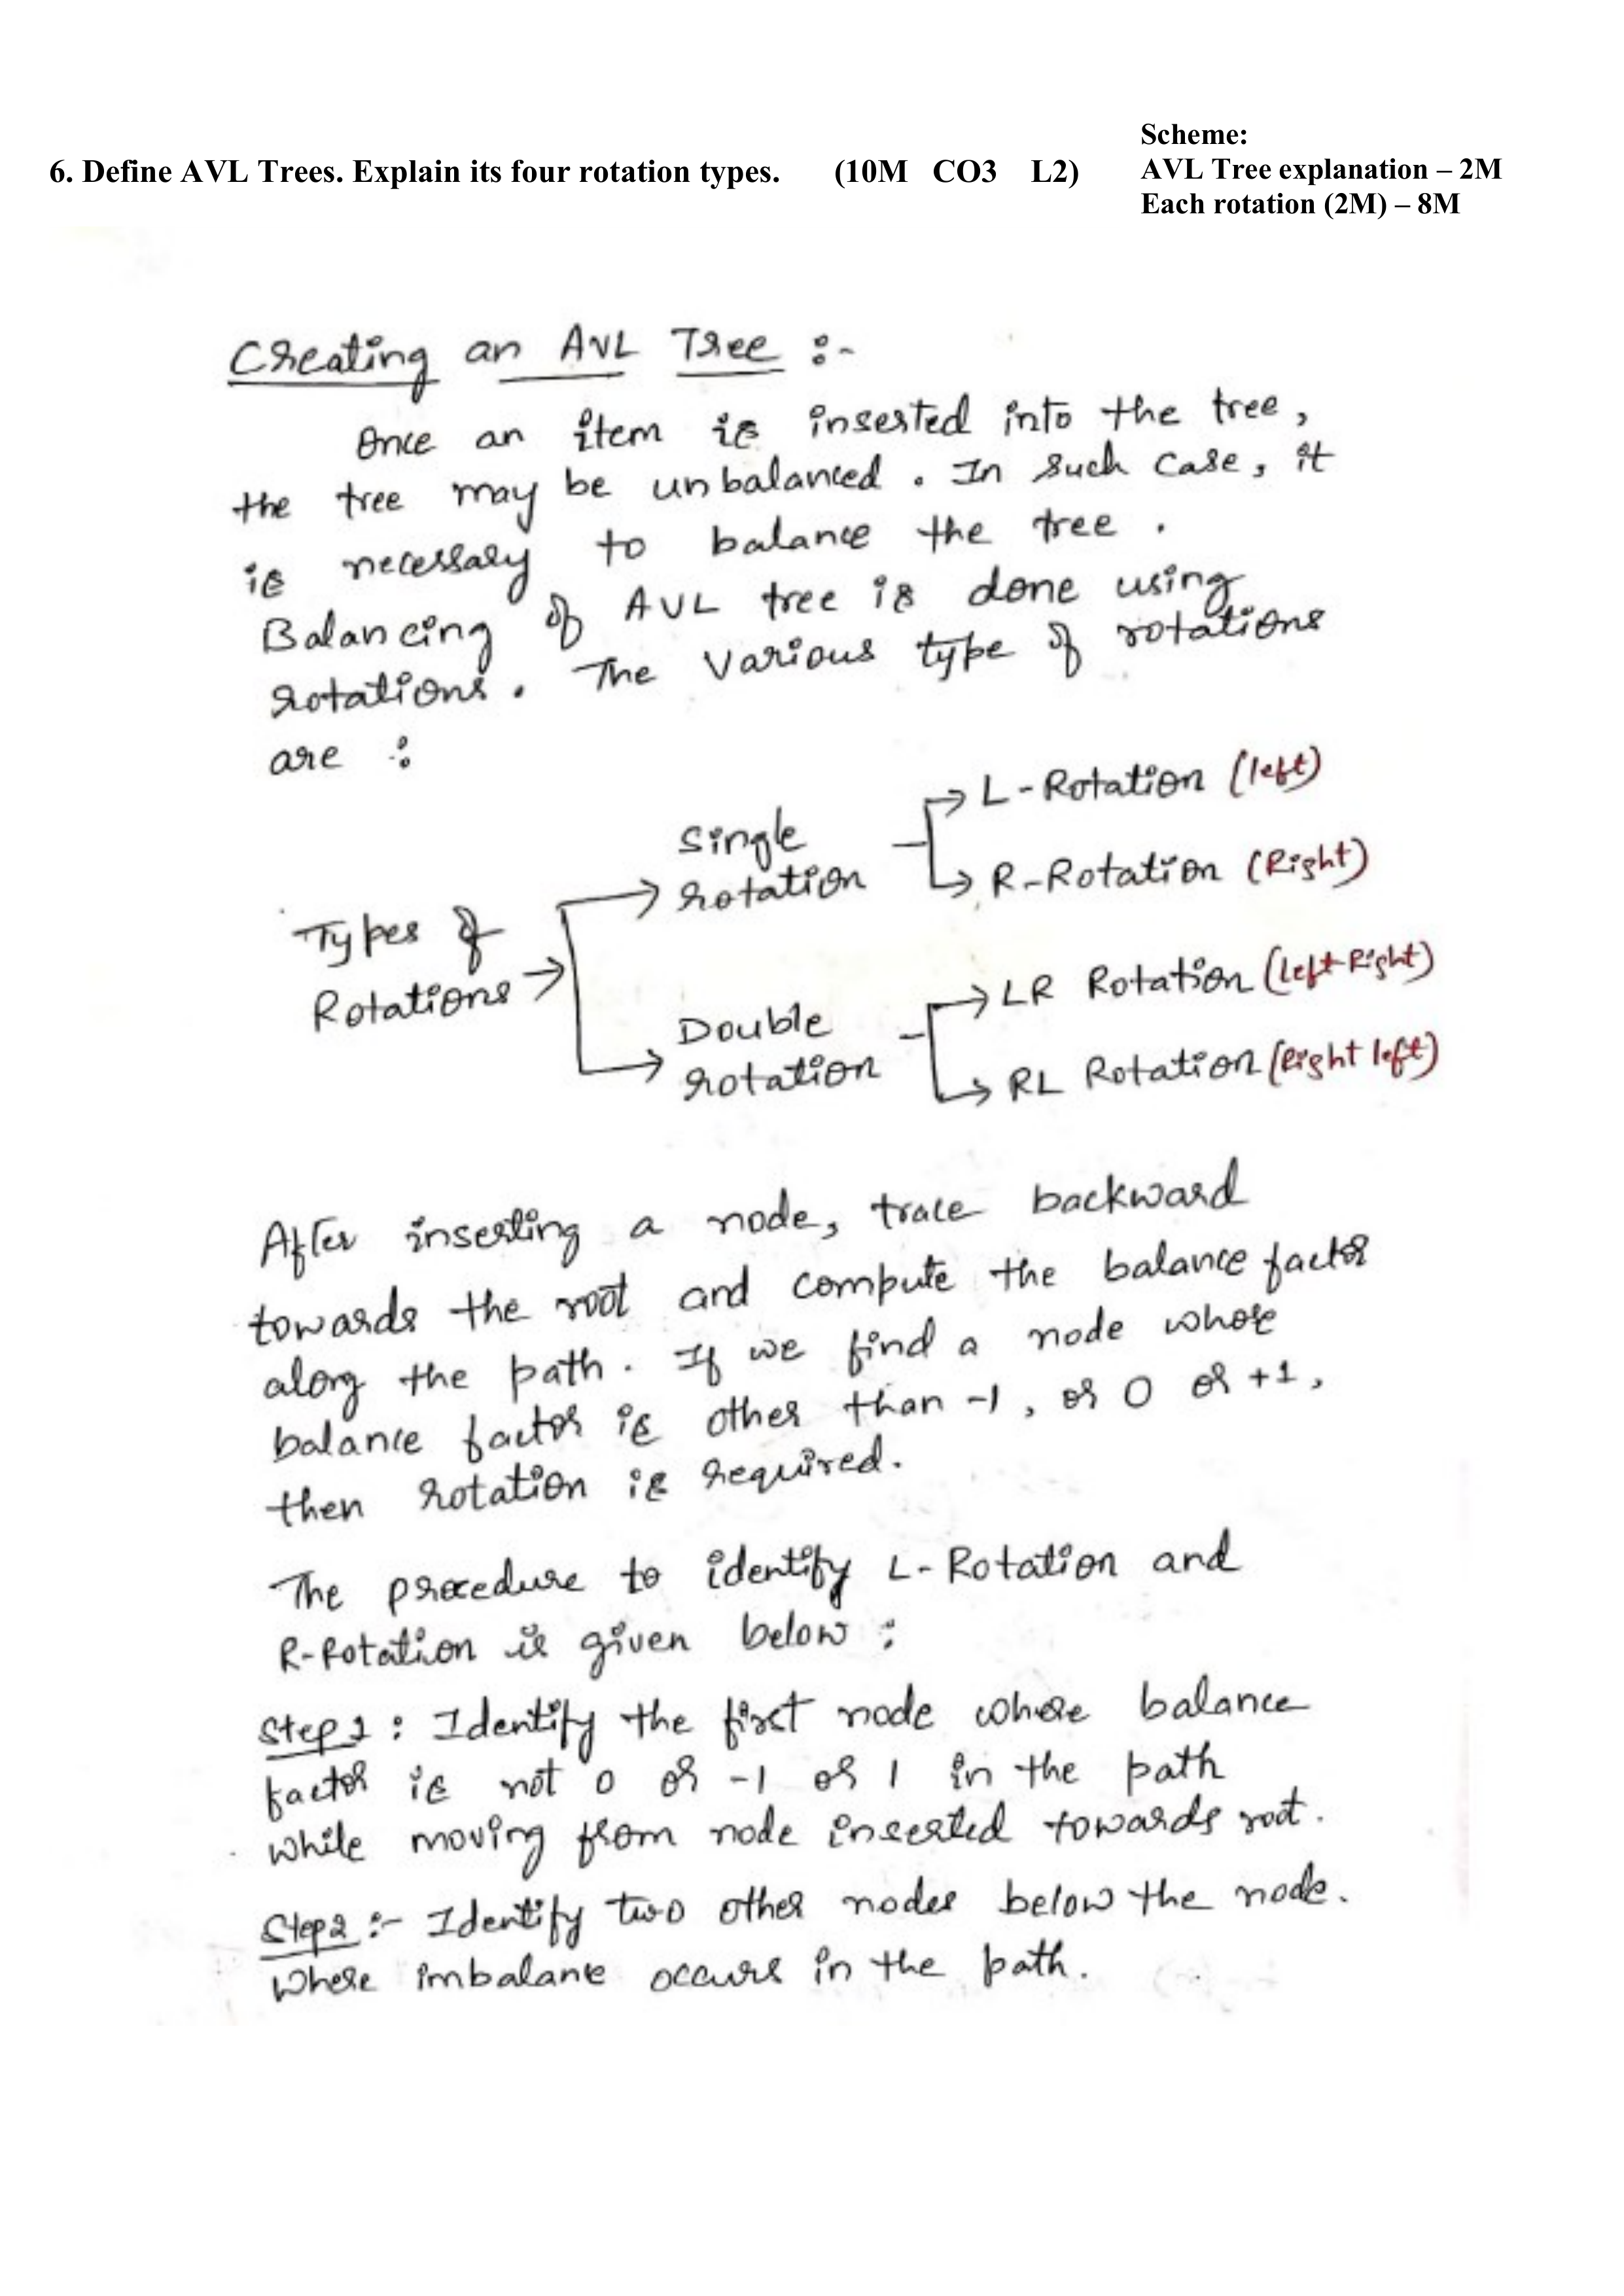 Scheme:
6. Define AVL Trees. Explain its four rotation types. (10M CO3 L2)
AVL Tree explanation – 2M
Each rotation (2M) – 8M
Creating an AVL Tree :-
Once an item is inserted into the tree,
the tree may be unbalanced. In such case, it
is necessary to balance the tree.
Balancing of AVL tree is done using
rotations. The various type of rotations
are :
Types of
Rotations →
Single
rotation
L-Rotation (left)
R-Rotation (Right)
Double
rotation
LR Rotation (Left Right)
RL Rotation (Right left)
After inserting a node, trace backward
towards the root and compute the balance factor
along the path. If we find a node whose
balance factor is other than -1, or 0 or +1,
then rotation is required.
The procedure to identify L-Rotation and
R-Rotation is given below :
Step 1 : Identify the first node whose balance
factor is not 0 or -1 or 1 in the path
while moving from node inserted towards root.
Step 2 :- Identify two other nodes below the node.
where imbalance occurs in the path.